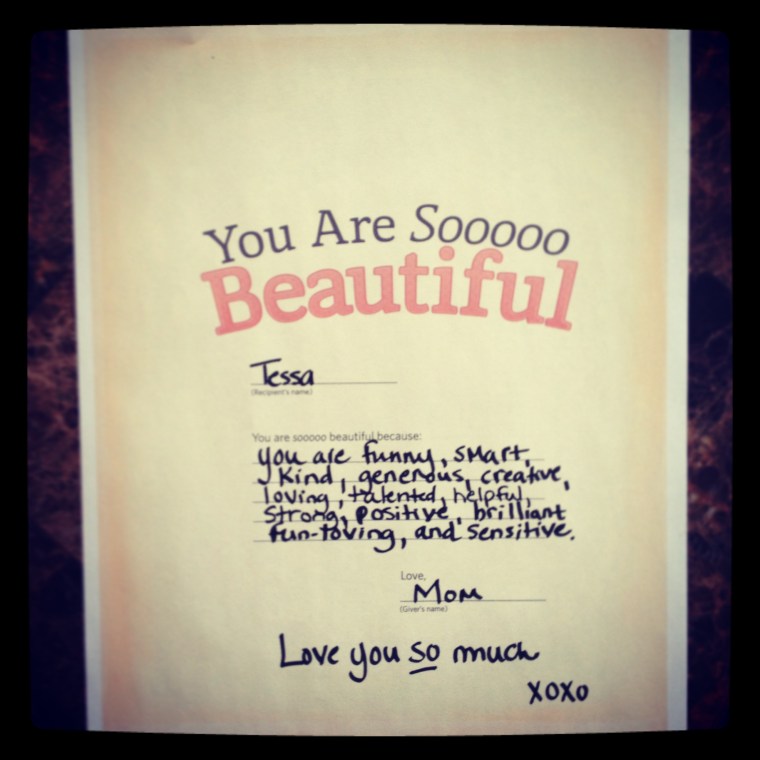 You Are Sooooo
Beautiful
Tessa
(Recipient's name)
You are sooooo beautiful because:
you are funny, smart,
kind, generous, creative,
loving, talented, helpful,
strong, positive, brilliant
fun-loving, and sensitive.
Love,
Mom
(Giver's name)
Love you so much
xoxo